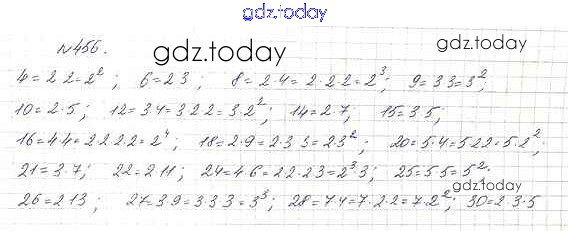 gdz.today
№456.
gdz.today
gdz.today
4=2·2=2²; 6=2·3; 8=2·4=2·2·2=2³; 9=3·3=3²;
10=2·5; 12=3·4=3·2·2=3·2²; 14=2·7; 15=3·5;
16=4·4=2·2·2·2=2⁴; 18=2·9=2·3·3=2·3²; 20=5·4=5·2·2=5·2²;
21=3·7; 22=2·11; 24=4·6=2·2·2·3=2³·3; 25=5·5=5²;
gdz.today
26=2·13; 27=3·9=3·3·3=3³; 28=7·4=7·2·2=7·2²; 30=2·3·5